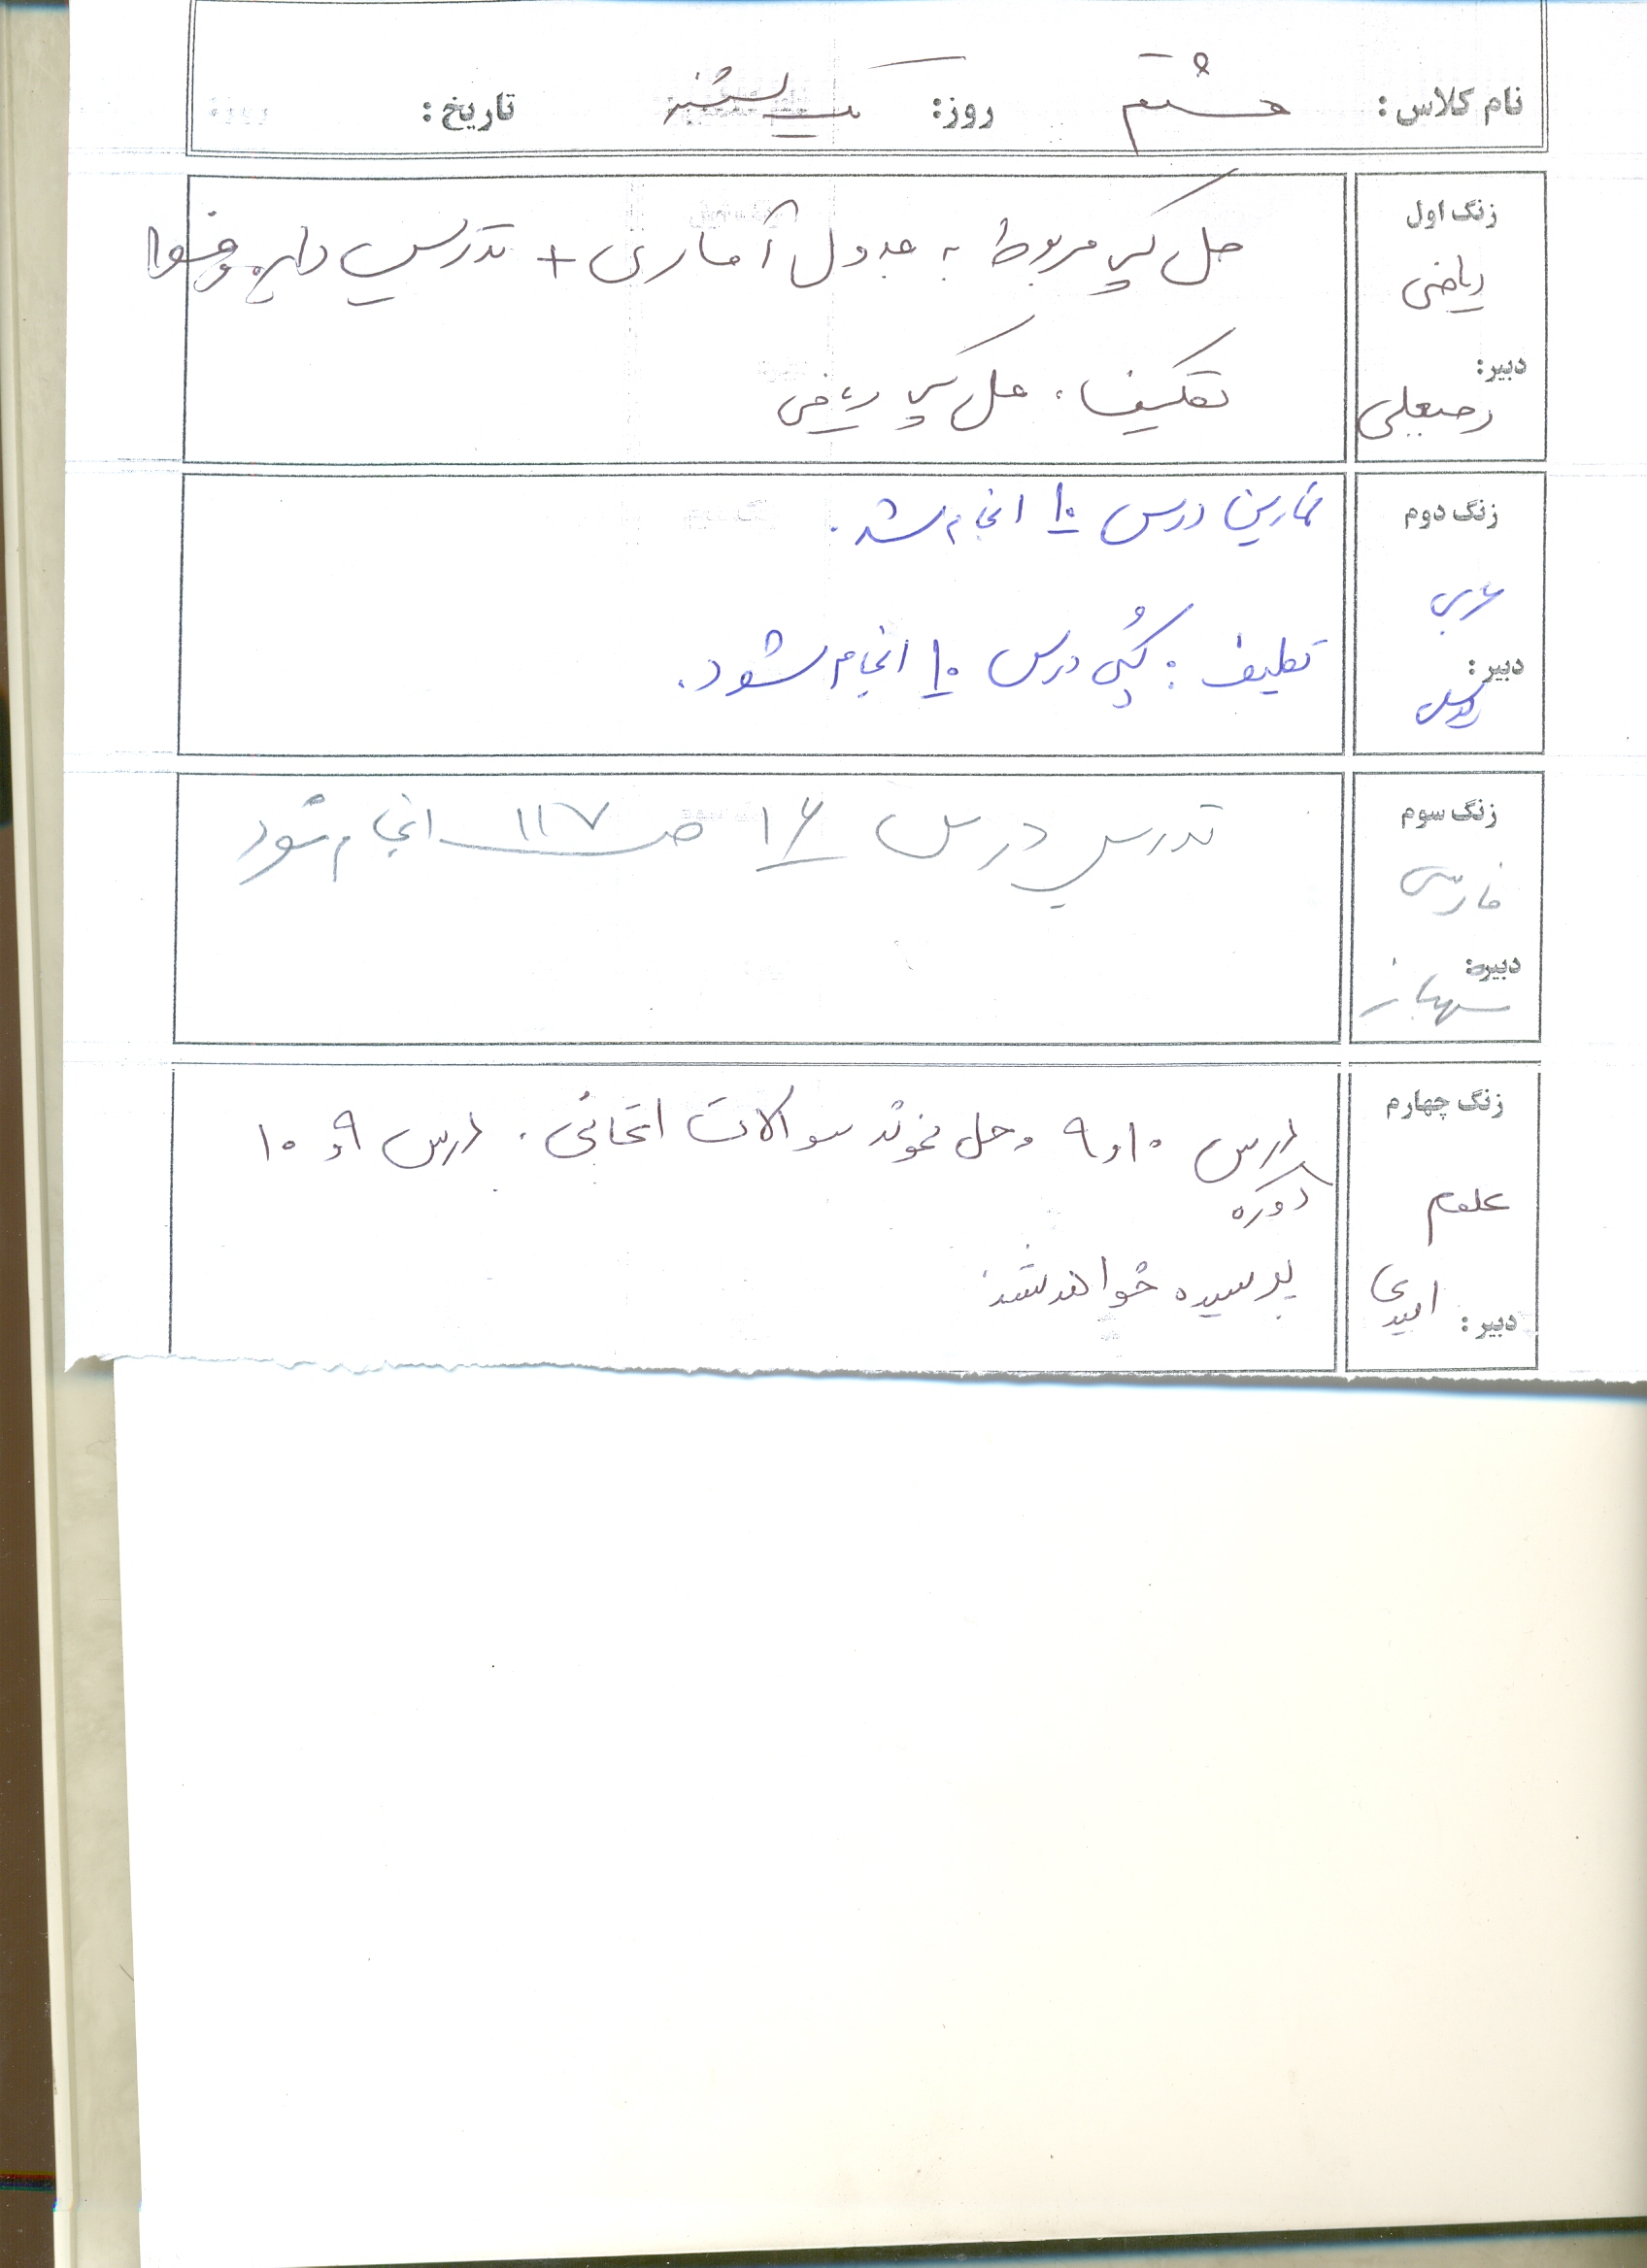 نام کلاس : هشتم روز: یکشنبه تاریخ :
زنگ اول
ریاضی
دبیر:
رجبعلی
حل کپی مربوط به جدول آماری + تدریس دایره
تکلیف : حل کپی ریاضی
زنگ دوم
عربی
دبیر:
تمارین درس ۱۰ انجام شد.
تکلیف : کپی درس ۱۰ انجام شود.
زنگ سوم
فارسی
دبیر:
شهباز
تدریس درس ۱۶ ص ۱۱۷ انجام شود
زنگ چهارم
علوم
دبیر : امیدی
درس ۱۰ و ۹ و حل نمونه سوالات امتحانی . درس ۹ و ۱۰
دوره
پرسیده خواهد شد